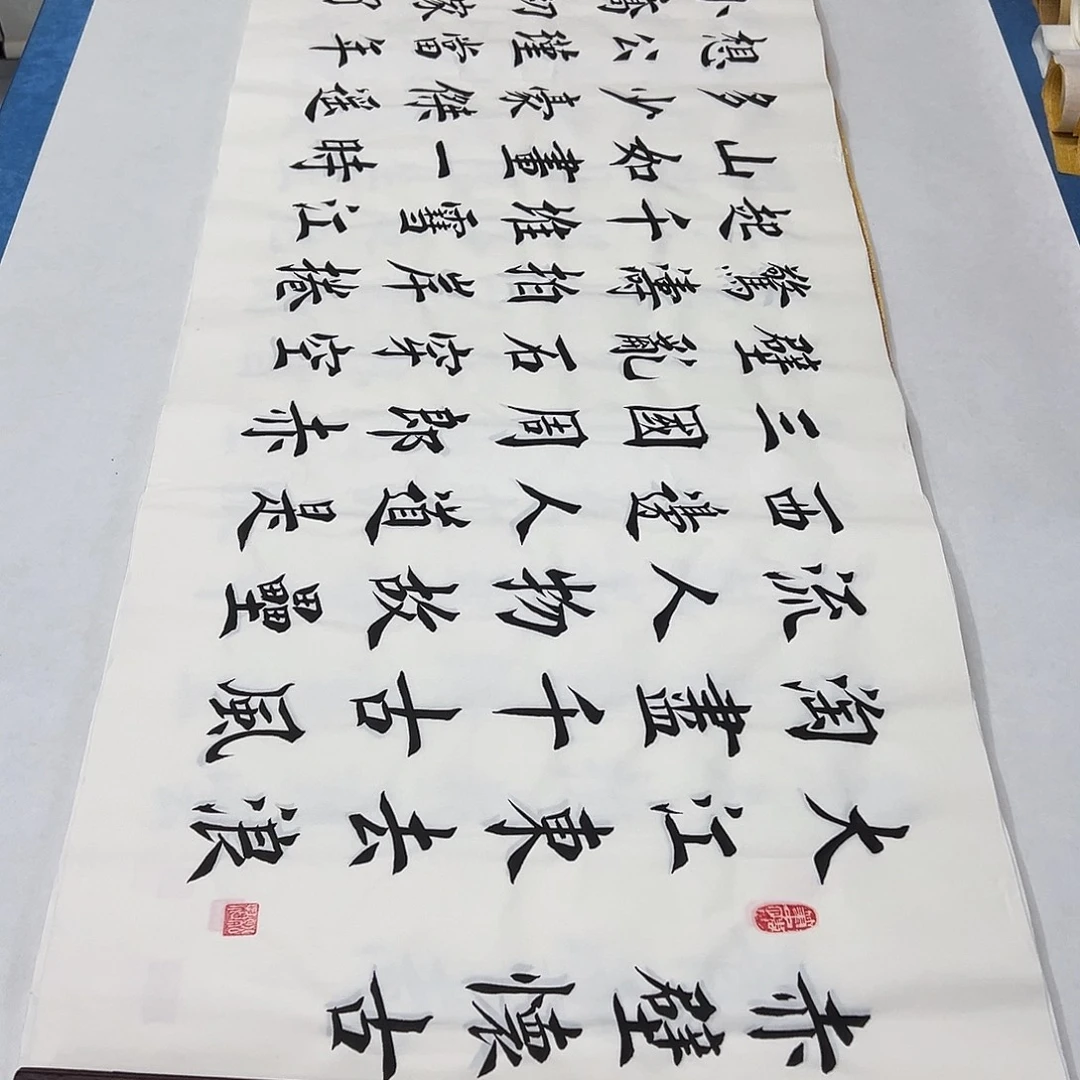 赤壁懷古
大江東去浪
淘盡千古風
流人物故壘
西邊人道是
三國周郎赤
壁亂石穿空
驚濤拍岸捲
起千堆雪江
山如畫一時
多少豪傑遙
想公瑾當年